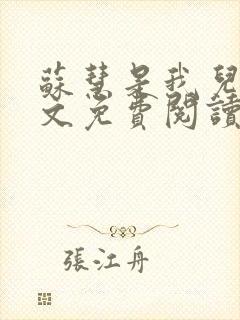 蘇慧是我兒
文免費閱讀
張江舟